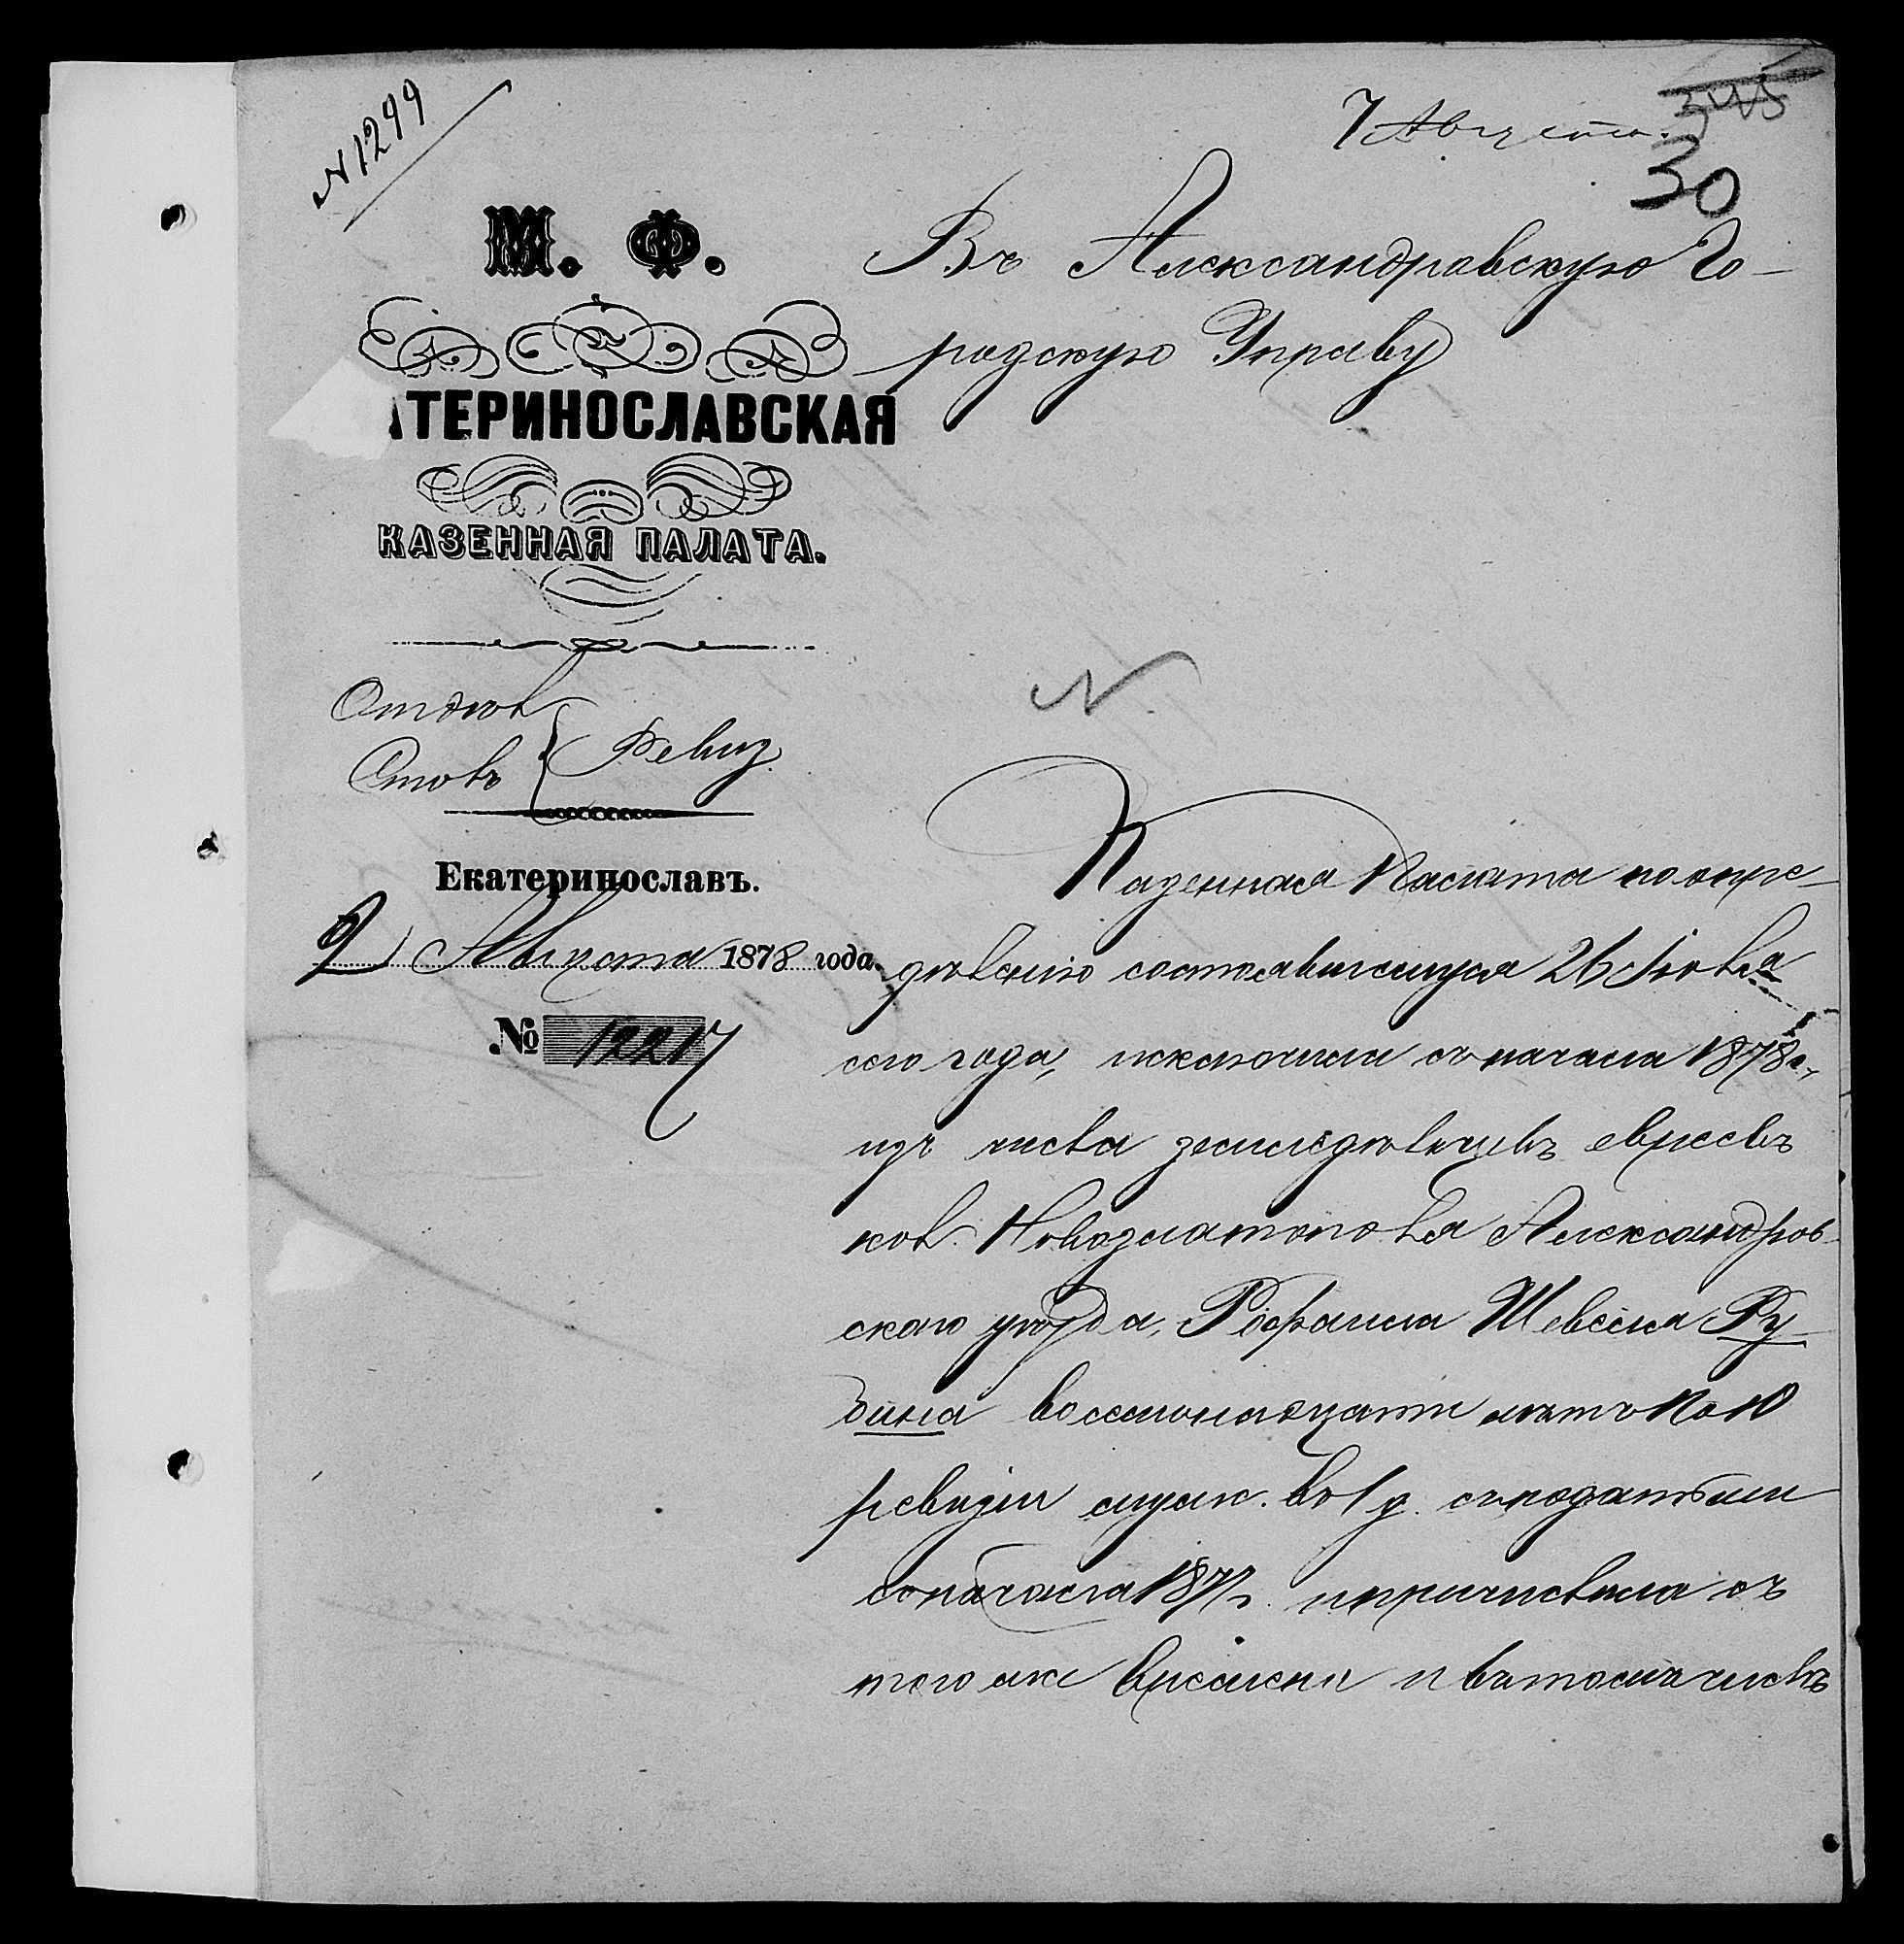 № 1299
7 Августа.
30
М. Ф.
АТЕРИНОСЛАВСКАЯ
КАЗЕННАЯ ПАЛАТА.
Отдѣл
Столъ
Ревиз.
Екатеринославъ.
2 Августа 1878 года.
№ 12217
Въ Александровскую Го-
родскую Управу
N
Казенная Палата по опре-
дѣленію состоявшемуся 26 Іюля
сего года, исключила съ начала 1878 г.,
изъ числа земледѣльцевъ евреевъ
кол. Новозлатополя Александров-
скаго уѣзда, Рафаила Шевеля Ру-
бина восемнадцати лѣтъ по 10
ревизіи муж. въ 1 д. съ податьми
съ начала 187 г. и причислила съ
того же времени и въ томъ числѣ